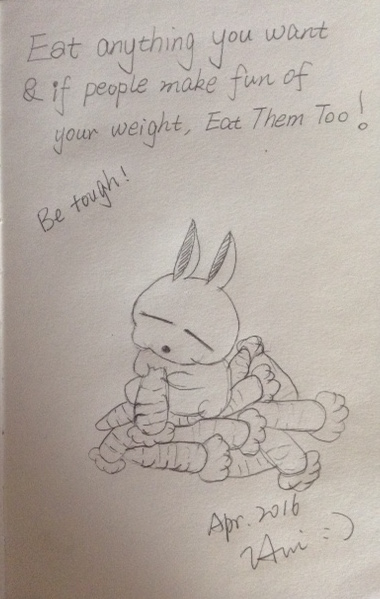 Eat anything you want
& if people make fun of
your weight, Eat Them Too!
Be tough!
Apr. 2016
:=)